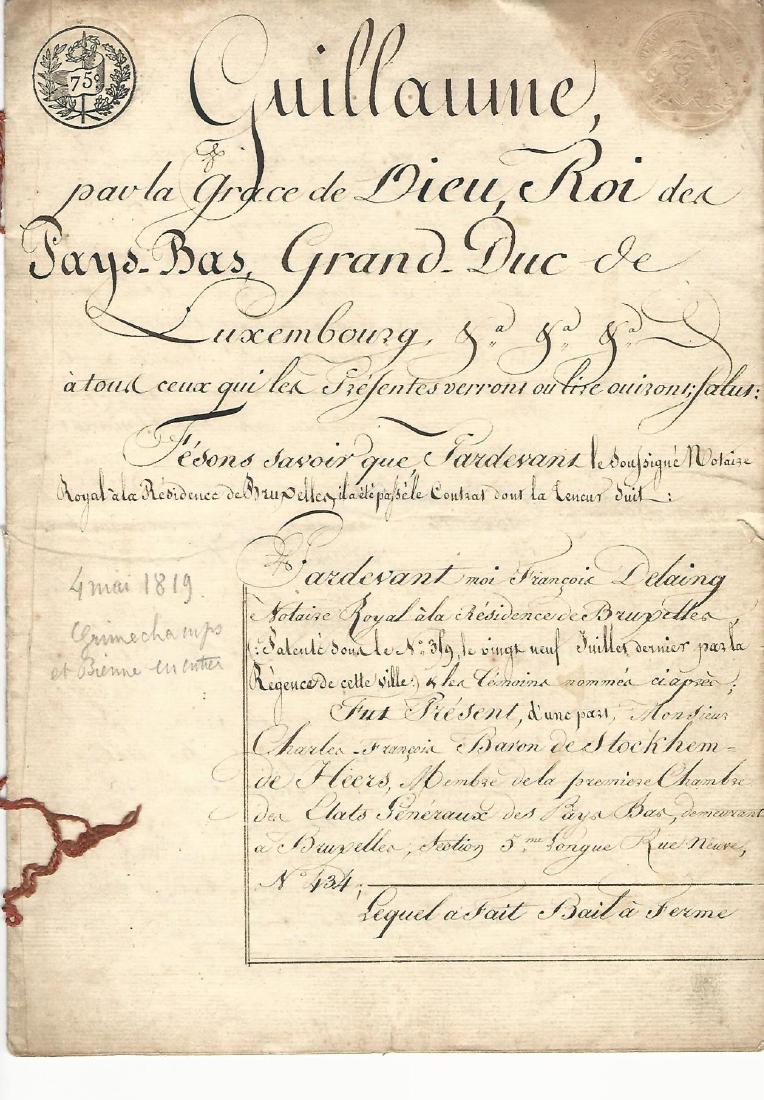 75c
Guillaume,
par la Grace de Dieu, Roi des
Pays-Bas, Grand-Duc de
Luxembourg, &a &a &a
à tous ceux qui les Présentes verront ou lire ouiront; salut:
Fésons savoir que, Pardevant le soussigné Notaire
Royal à la Résidence de Bruxelles, il a été passé le Contrat dont la teneur suit:
4 mai 1819.
Grimechamps
et Bienne en entier
Pardevant moi François Delaing
Notaire Royal à la Résidence de Bruxelles,
(:Patenté sous le No. 319, le vingt neuf Juillet dernier par la
Régence de cette ville:) & les témoins nommés ciaprès;
Fut Présent, d'une part, Monsieur
Charles-François Baron de Stockhem-
de Heers, Membre de la premiere Chambre
des Etats Généraux des Pays Bas, demeurant
à Bruxelles, Section 5.me Longue Rue Neuve,
No. 434;
Lequel a Fait Bail à Ferme